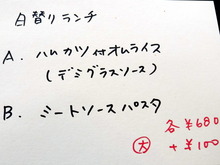 日替りランチ
A. ハムカツ付オムライス
(デミグラスソース)
B. ミートソースパスタ
各¥680
大 +¥100